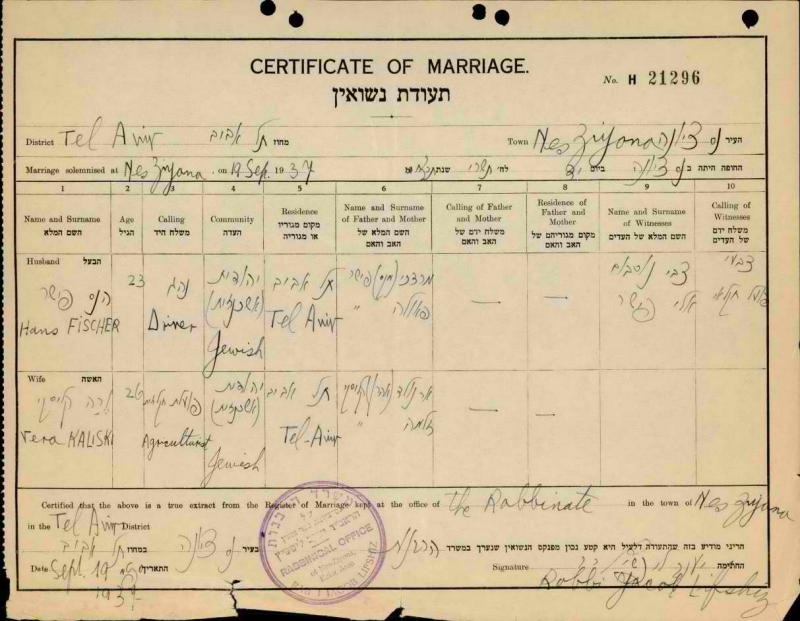 CERTIFICATE OF MARRIAGE.
No. H 21296
תעודת נשואין
District Tel Aviv תל אביב מחוז Town Nes Ziyona נס ציונה העיר
Marriage solemnised at Nes Ziyona on 19 Sep. 1937 לח' תשרי שנת ביום יד נס ציונה החופה היתה ב
1 2 3 4 5 6 7 8 9 10
Name and Surname השם המלא
Age הגיל
Calling משלח היד
Community העדה
Residence מקום מגוריו או מגוריה
Name and Surname of Father and Mother השם המלא של האב והאם
Calling of Father and Mother משלח ידם של האב והאם
Residence of Father and Mother מקום מגוריהם של האב והאם
Name and Surname of Witnesses השם המלא של העדים
Calling of Witnesses משלח ידם של העדים
Husband הבעל
הנס פישר
Hans FISCHER
23
נהג
Driver
יהודית
(אשכנזית)
Jewish
תל אביב
Tel Aviv
מרדכי פישר
פאולה "
—
—
צבי
אלי
פועל חקלאי
Wife האשה
ורה קליסקי
Vera KALISKI
26
פועלת חקלאית
Agriculturist
יהודית
(אשכנזית)
Jewish
תל אביב
Tel-Aviv
ארנולד קליסקי
"
—
—
Certified that the above is a true extract from the Register of Marriage kept at the office of the Rabbinate in the town of Nes Ziyona
in the Tel Aviv District
הריני מודיע בזה שהתעודה דלעיל היא קטע נכון מפנקס הנשואין שנערך במשרד הרבנות
בעיר נס ציונה במחוז תל אביב
Date Sept. 19 1937 התאריך
Signature החתימה
Rabbi Jacob Lifshiz
RABBINICAL OFFICE